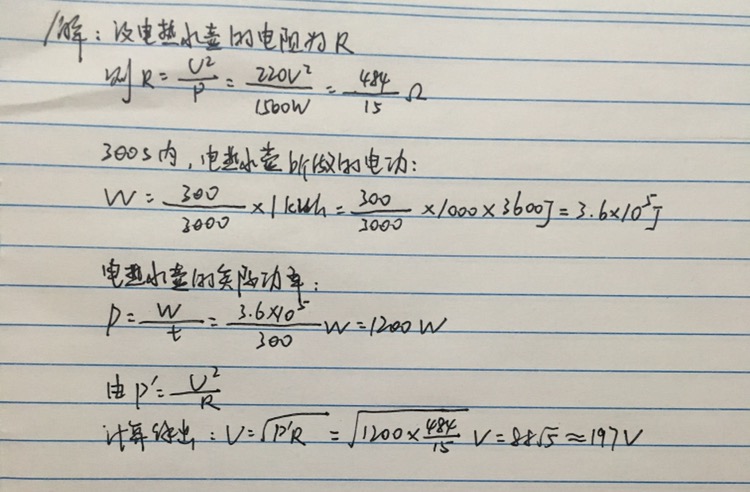 解：设电热水壶的电阻为R
则 R = U²/P = 220V²/1500W = 484/15 Ω
300s内，电热水壶所做的电功：
W = 300/3000 × 1kWh = 300/3000 × 1000 × 3600J = 3.6×10⁵J
电热水壶的实际功率：
P = W/t = 3.6×10⁵/300 W = 1200W
由 P′ = U²/R
计算得出：U = √P′R = √1200×484/15 V = 88√5 ≈ 197V